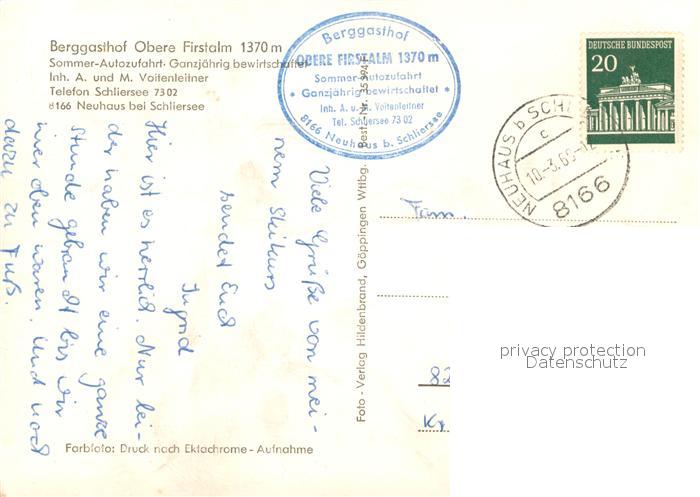 Berggasthof Obere Firstalm 1370 m
Sommer-Autozufahrt · Ganzjährig bewirtschaftet
Inh. A. und M. Voitenleitner
Telefon Schliersee 7302
8166 Neuhaus bei Schliersee
Berggasthof
OBERE FIRSTALM 1370 m
Sommer-Autozufahrt
* Ganzjährig bewirtschaftet *
Inh. A. u. M. Voitenleitner
Tel. Schliersee 73 02
8166 Neuhaus b. Schliersee
DEUTSCHE BUNDESPOST
20
NEUHAUS b SCH
c
8166
Viele Grüße von mei-
nem Skikurs
sendet Euch
Ingrid
Hier ist es herrlich. Nur lei-
der haben wir eine ganze
Stunde gebraucht bis wir
hier oben waren. Und noch
dazu zu Fuß.
Fam.
Foto - Verlag Hildenbrand, Göppingen Wttbg.
Best. - Nr.
privacy protection
Datenschutz
Farbfoto: Druck nach Ektachrome - Aufnahme